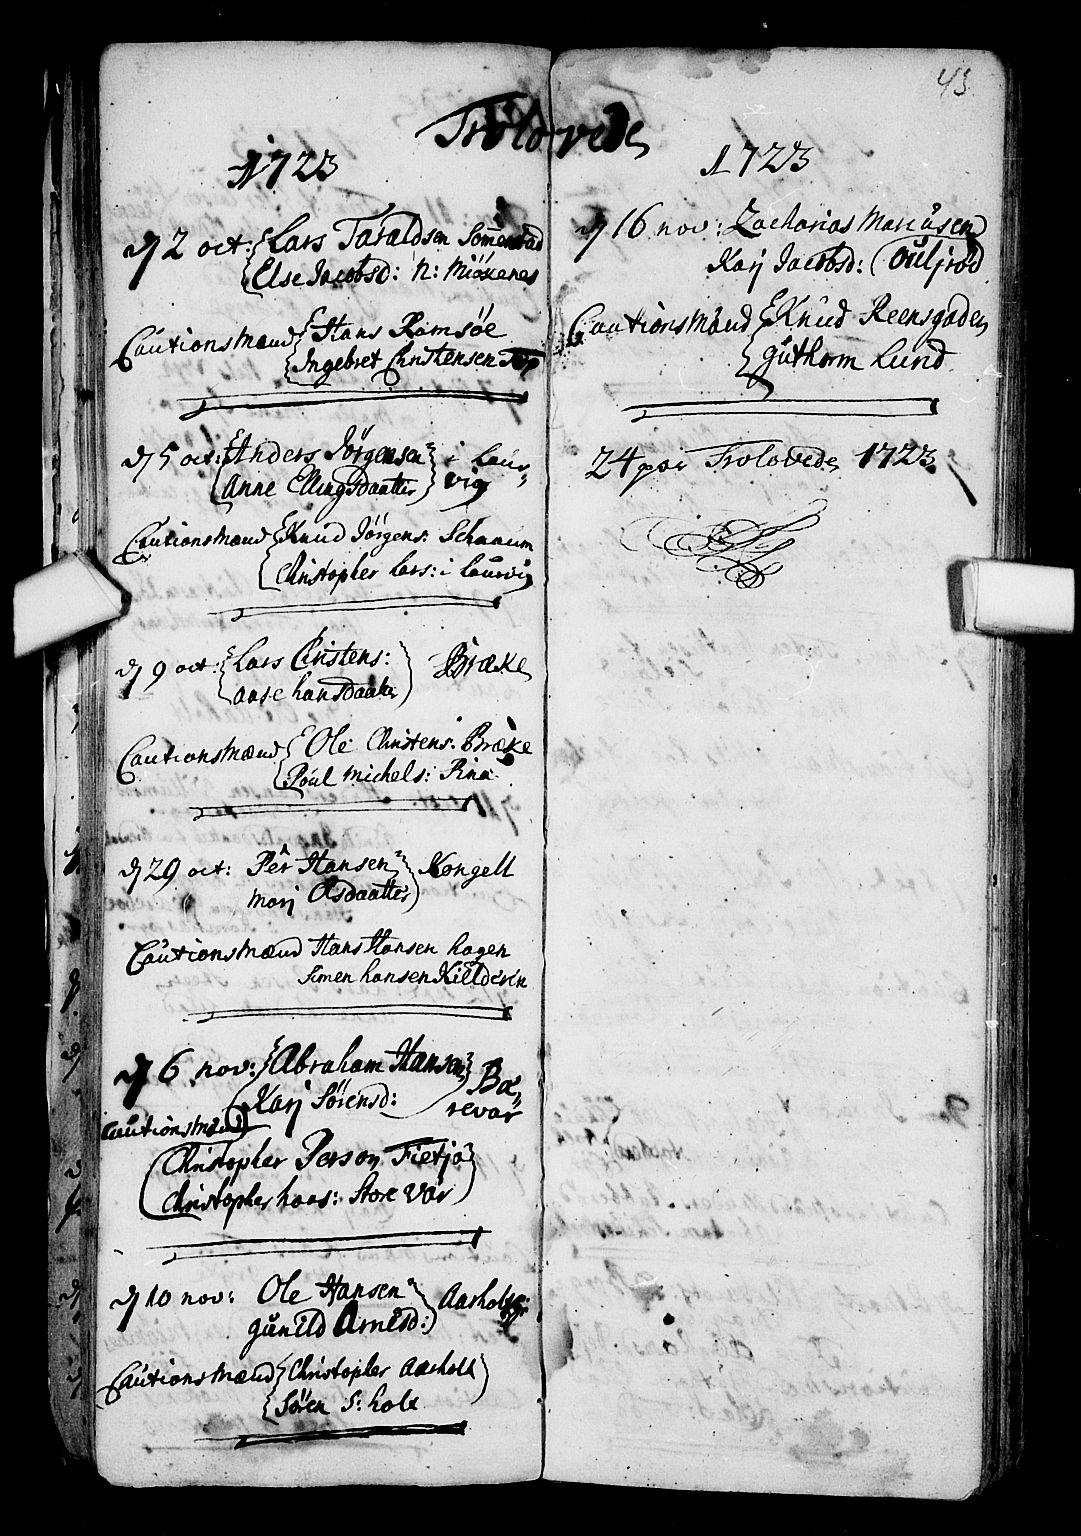 43
Trolovede
1723
dj 2 oct: Lars Taraldsen Sömmerstad
Else Jacobsd: N: Miösenes
Cautionsmænd Hans Ramsöe
Ingebret Christensen Top
dj 5 oct: Anders Jörgensen i Laur-
Anne Ellingsdaatter vig
Cautionsmænd Knud Jörgens: Schauum
Christopher Lars: i Laurvig
dj 9 oct: Lars Christens: Bræke
Aase hansdaatter
Cautionsmænd Ole Christens: Bræke
Poul Michels: Rina
dj 29 oct: Per Hansen Kongell
Mari Olsdaatter
Cautionsmænd Hans Hansen hagen
Simen hansen Killderön
dj 6 nov: Abraham Hansen Bæ-
Karj Sörensd: revar
Cautionsmænd
Christopher Person Fietjo
Christopher haas: Store Var
dj 10 nov: Ole Hansen Aarholt
gunild Arnesd:
Cautionsmænd Christopher Aarholt
Sören S: holt
1723
dj 16 nov: Zacharias Marcusen
Karj Jacobsd: Ouljrød
Cautionsmænd Knud Reensgaden
guthorm Lund
24 par Trolovede 1723